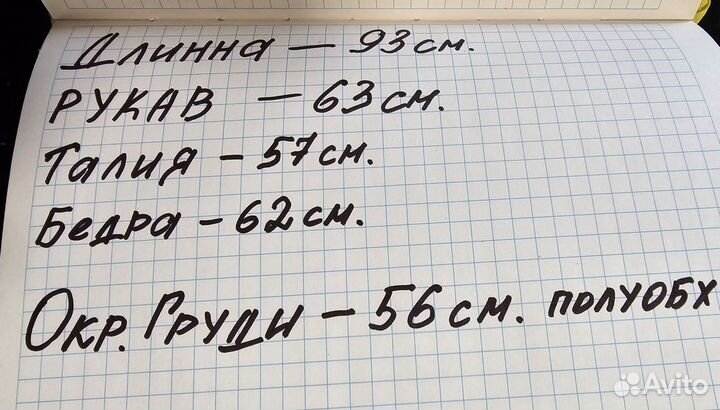 Длинна – 93 см.
РУКАВ – 63 см.
Талия – 57 см.
Бедра – 62 см.
Окр. Груди – 56 см. полуобх
Avito